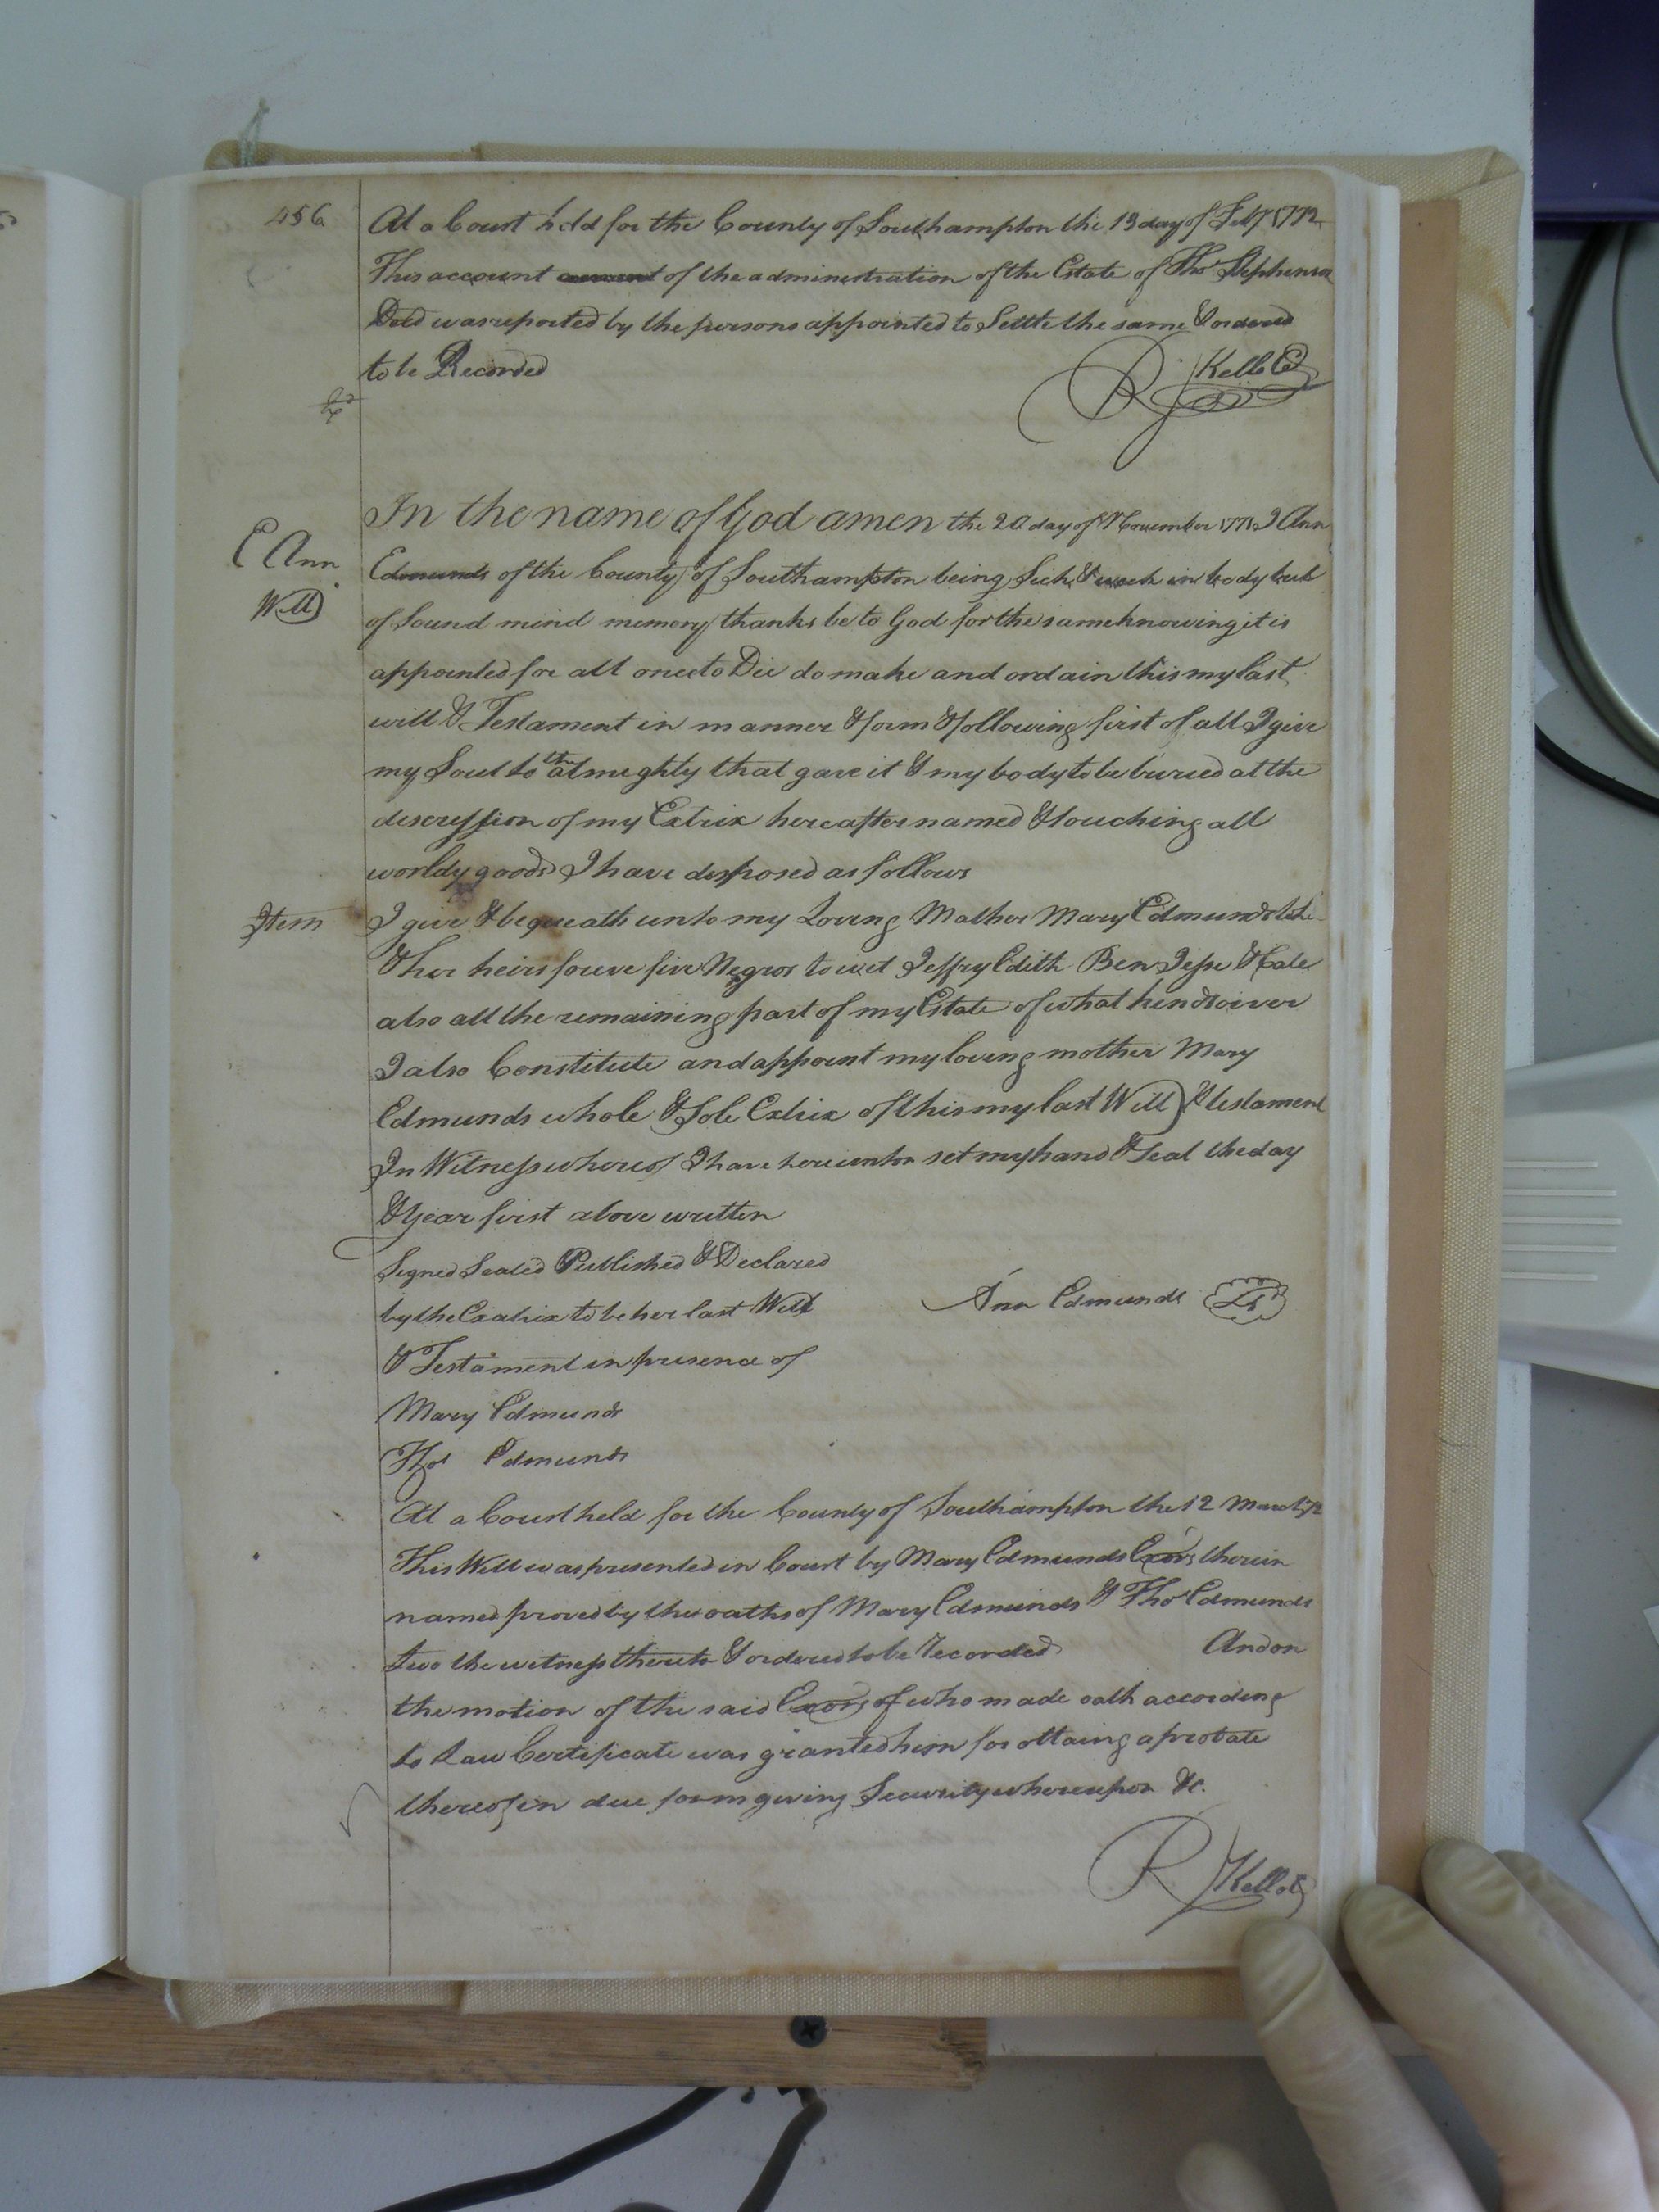 456
At a Court held for the County of Southampton the 13 day of Feby 1772
This account of the administration of the Estate of Thos Stephenson
Decd was reported by the persons appointed to Settle the same & ordered
to be Recorded
R Kello CC
Exd
In the name of God amen the 20 day of November 1771 I Ann
E Ann
Edmunds of the County of Southampton being Sick & weak in body but
Will
of Sound mind memory thanks be to God for the same knowing it is
appointed for all once to Die do make and ordain this my last
will & Testament in manner & form & following first of all I give
my Soul to the almighty that gave it & my body to be buried at the
descression of my Extrix hereafter named & touching all
worldy goods I have desposed as follows
Item I give & bequeath unto my Loving Mother Mary Edmunds
& her heirs forure five Negros to wit Jeffry Edith Ben Jesse &
also all the remaining part of my Estate of what kendsoiver
I also Constitute and appoint my loving mother Mary
Edmunds whole & Sole Extrix of this my last Will & testament
In Witness whereof I have hereunton set my hand & Seal the day
& Year first above written
Signed Sealed Published & Declared
by the Exatrix to be her last Will
Ann Edmunds LS
& Testament in presence of
Mary Edmunds
Thos Edmunds
At a Court held for the County of Southampton the 12 March 72
This Will was presented in Court by Mary Edmunds Exors therein
named proved by the oaths of Mary Edmunds & Thos Edmunds
two the witness thereto & ordered to be recorded And on
the motion of the said Exors of who made oath according
to Law Certificate was granted him for ottaing a probate
thereof in due form giving Security whereupon &c.
R Kello CC